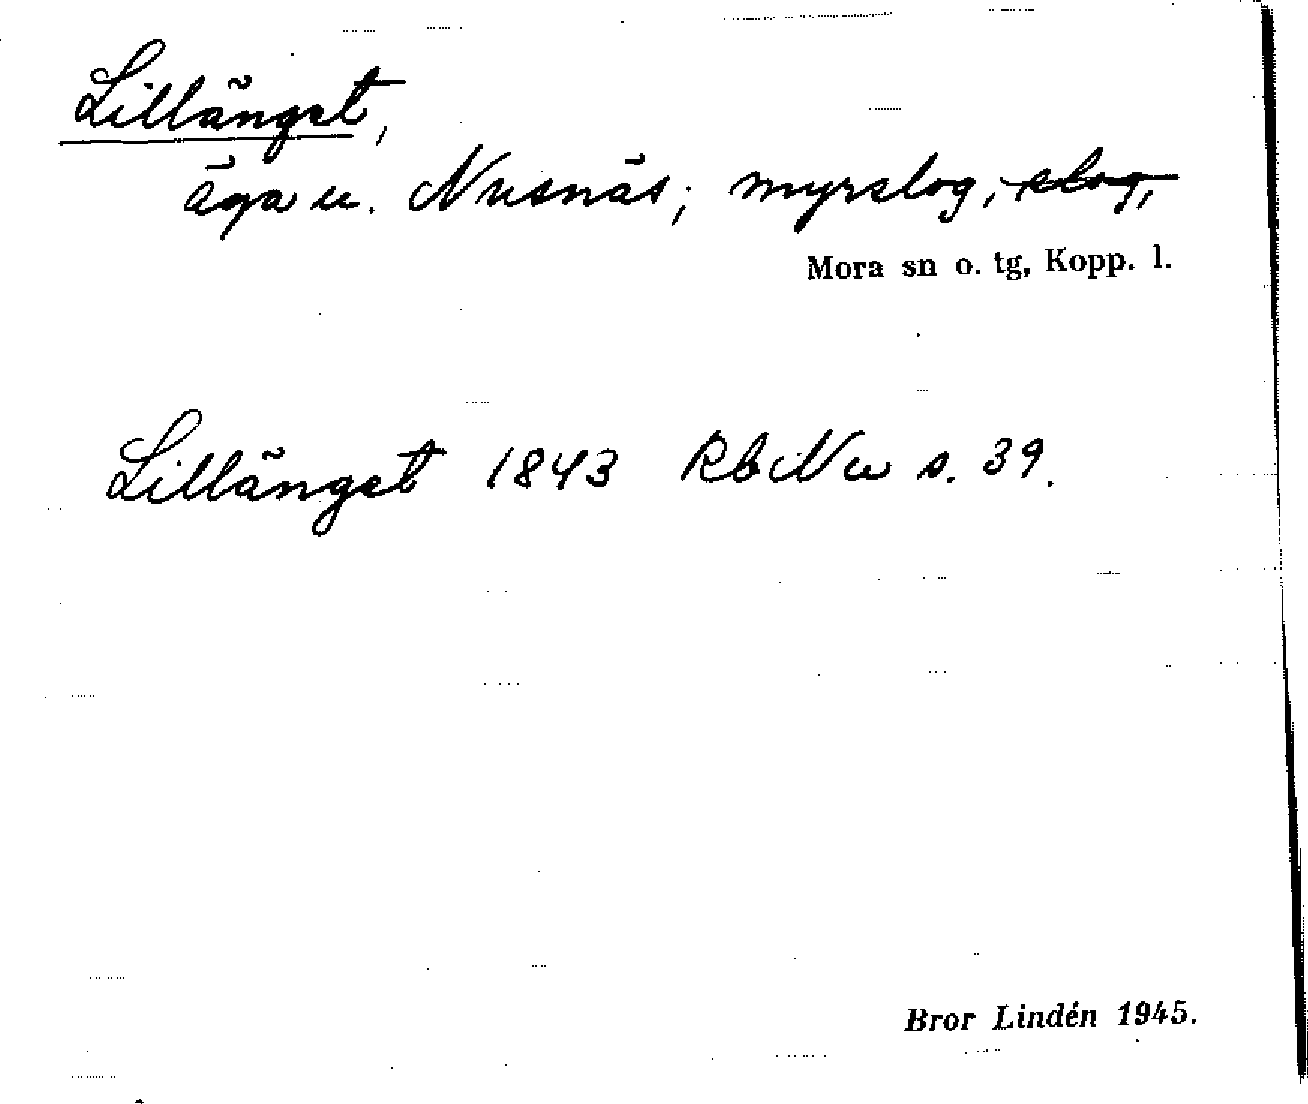 Lillänget,
äga u. Nusnäs; myrslog, slog,
Mora sn o. tg, Kopp. l.
Lillänget 1843 RbNu s. 39.
Bror Lindén 1945.